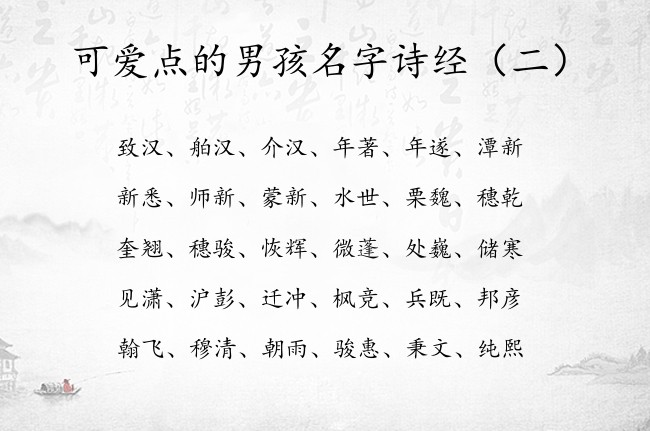 可爱点的男孩名字诗经（二）
致汉、舶汉、介汉、年著、年遂、潭新
新悉、师新、蒙新、水世、栗魏、穗乾
奎翘、穗骏、恢辉、微蓬、处巍、储寒
见潇、沪彭、迁冲、枫竞、兵既、邦彦
翰飞、穆清、朝雨、骏惠、秉文、纯熙